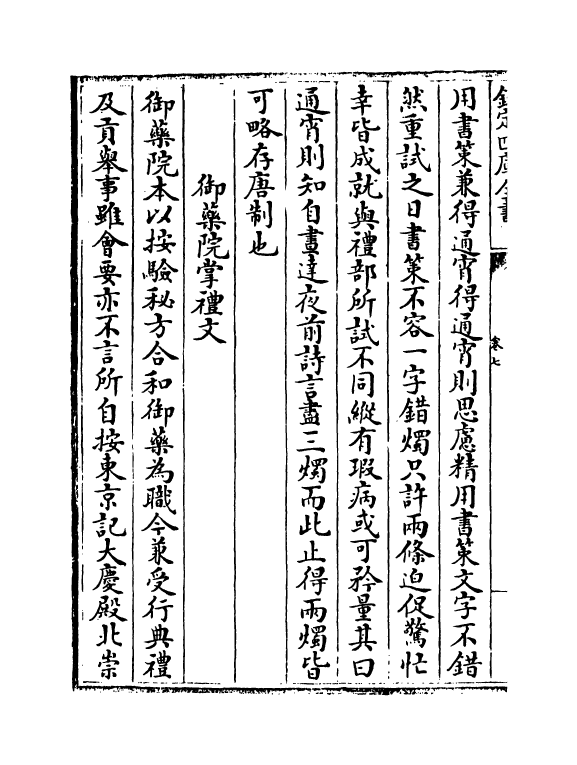 欽定四庫全書
卷七
用書策兼得通宵得通宵則思慮精用書策文字不錯
然重試之日書策不容一字錯燭只許兩條迫促驚忙
幸皆成就與禮部所試不同縱有瑕病或可矜量其曰
通宵則知自晝達夜前詩言盡三燭而此止得兩燭皆
可略存唐制也
御藥院掌禮文
御藥院本以按驗秘方合和御藥為職今兼受行典禮
及貢舉事雖會要亦不言所自按東京記大慶殿北崇